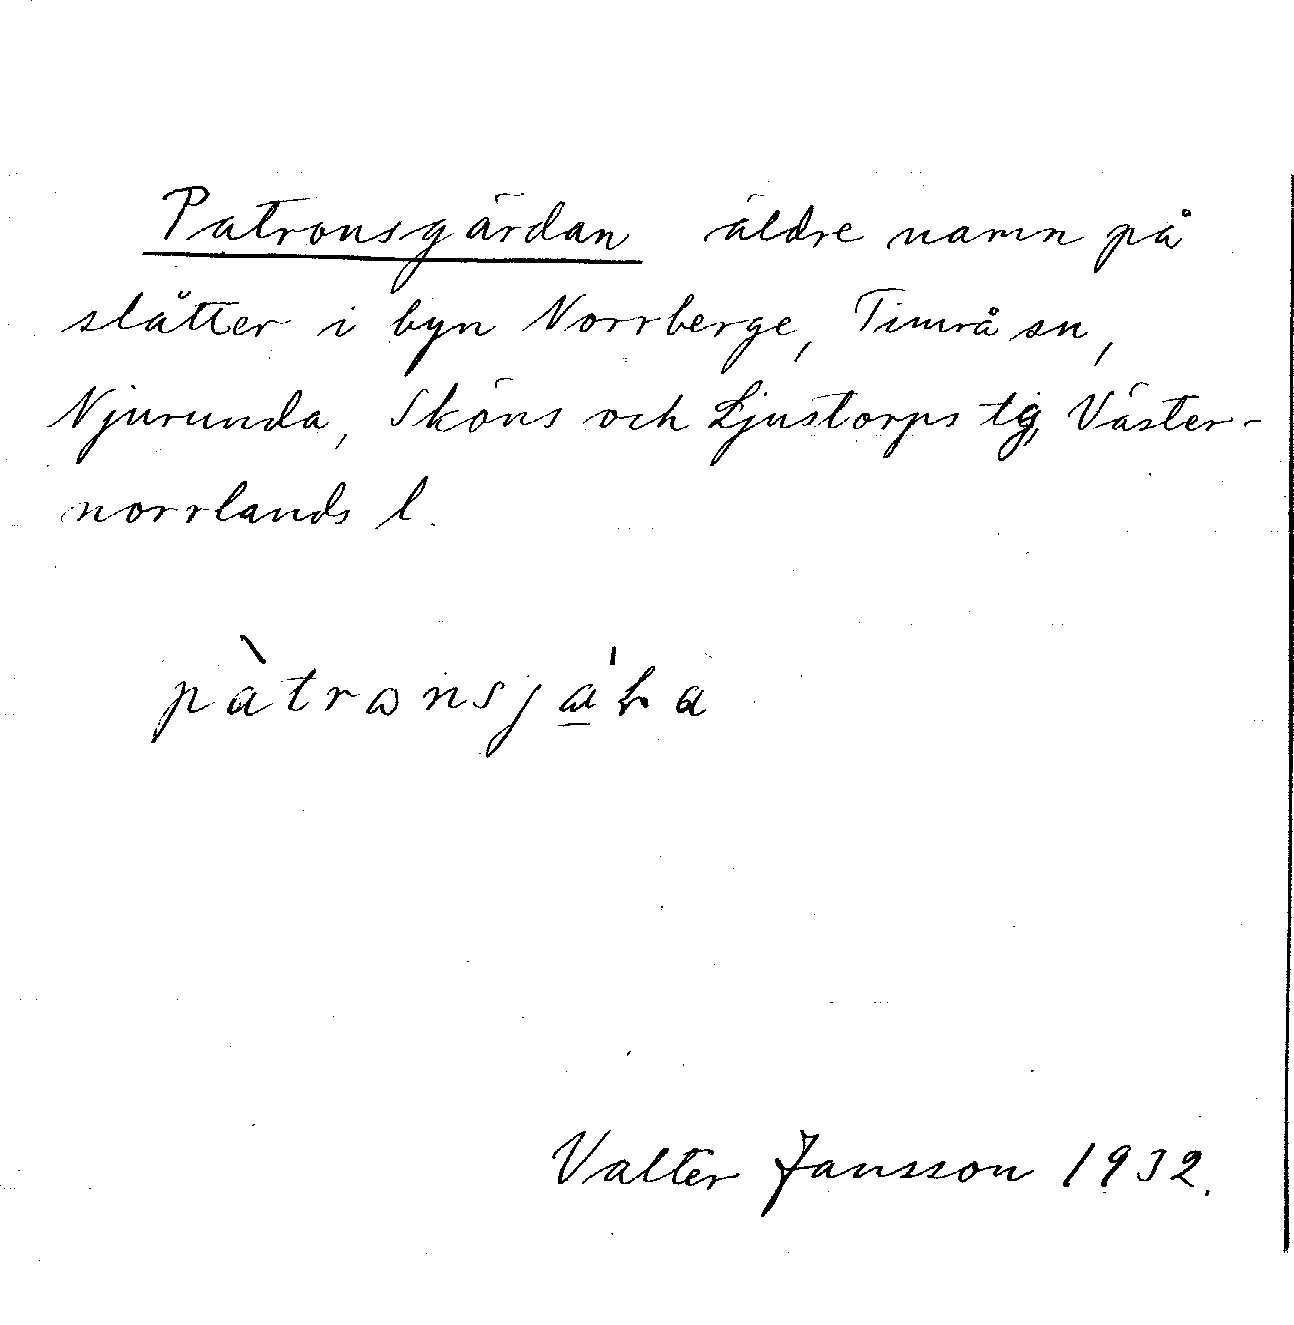 Patronsgärdan äldre namn på
slåtter i byn Norrberge, Timrå sn,
Njurunda, Sköns och Ljustorps tg, Väster-
norrlands l.
Valter Jansson 1932.